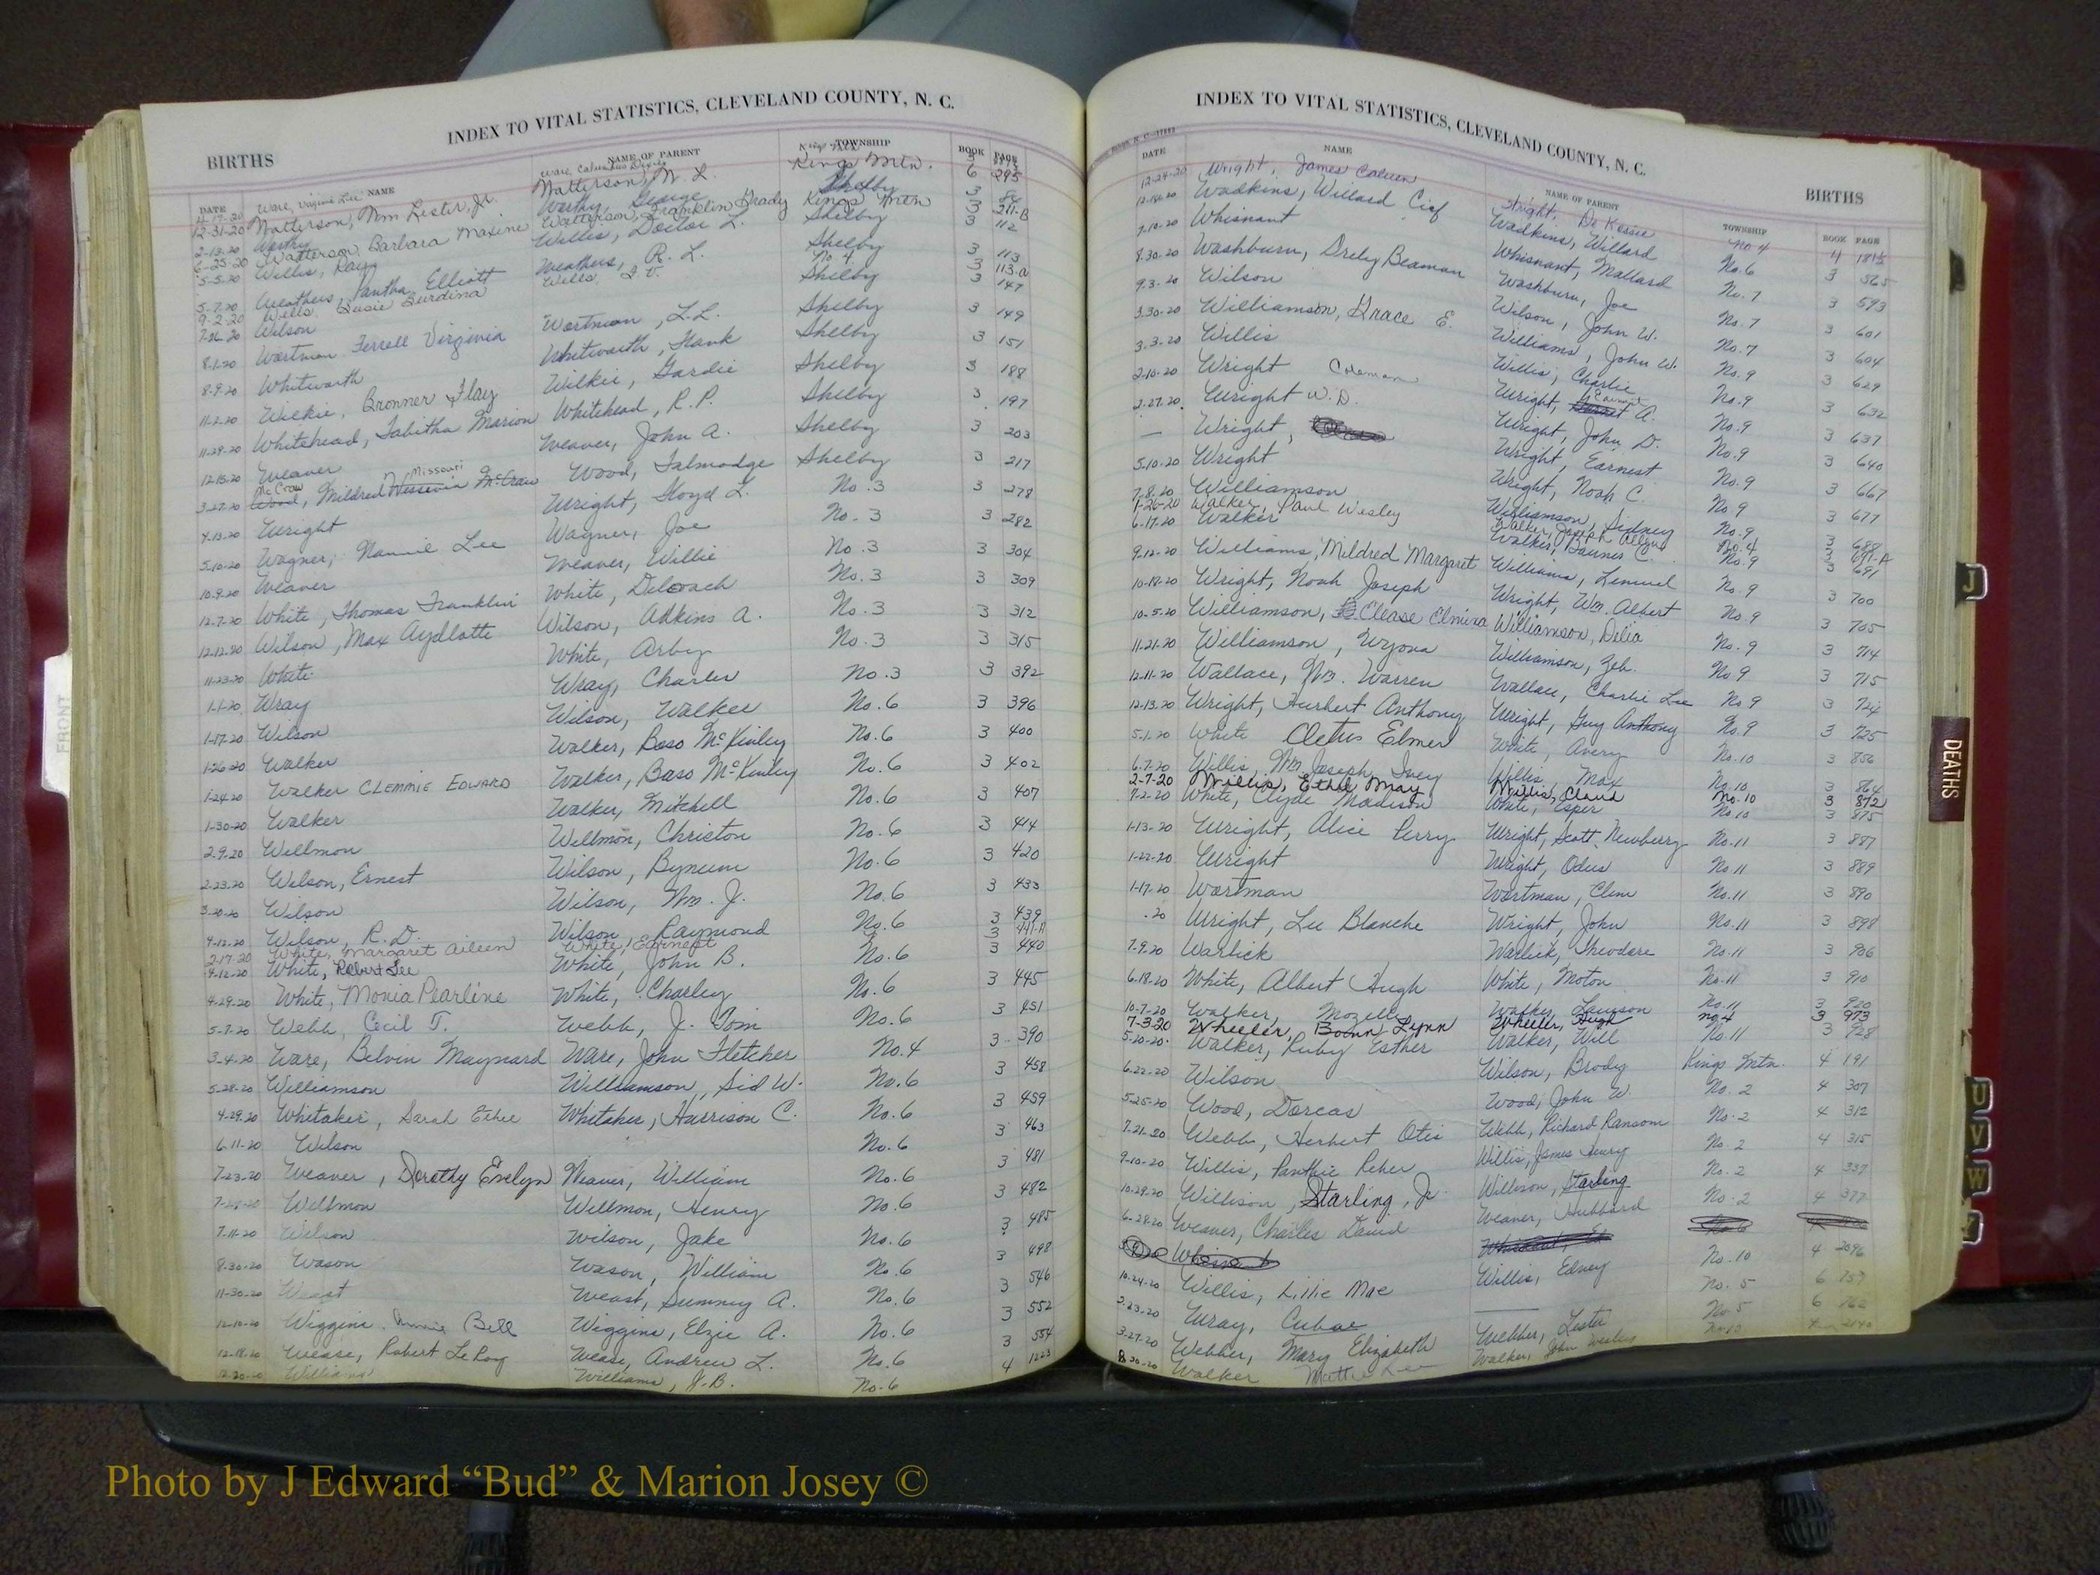 INDEX TO VITAL STATISTICS, CLEVELAND COUNTY, N. C.
BIRTHS
DATE NAME NAME OF PARENT TOWNSHIP BOOK PAGE
Ware, Virginia Lee
12-31-20 Watterson, Wm Lester, Jr. Watterson, W. L. Kings Mtn. 6 295
2-13-20 Worthy Worthy, George Shelby 3 86
6-25-20 Watterson, Barbara Maxine Watterson, Franklin Grady Kings Mtn 3 211-B
5-5-20 Willis, Ray Willis, Doctor L. Shelby 3 112
5-7-20 Weathers, Elliott Weathers, R. L. Shelby 3 113
9-2-20 Wells, Susie Burdina Wells No. 4 3 113-a
7-26-20 Wilson Shelby 3 147
8-1-20 Wortman Ferrell Virginia Wortman, L.L. Shelby 3 149
8-9-20 Whitworth Whitworth, Hank Shelby 3 151
11-2-20 Wilkie, Bronner Flay Wilkie, Gardie Shelby 3 188
11-29-20 Whitehead, Tabitha Marion Whitehead, R. P. Shelby 3 197
12-15-20 Weaver Weaver, John A. Shelby 3 203
3-27-20 Wood, Mildred Missouri McCraw Wood, Talmadge Shelby 3 217
4-13-20 Wright Wright, Floyd L. No. 3 3 278
5-10-20 Wagner, Nannie Lee Wagner, Joe No. 3 3 282
10-9-20 Weaver Weaver, Willie No. 3 3 304
12-7-20 White, Thomas Franklin White, No. 3 3 309
12-12-20 Wilson, Max Aydlotte Wilson, Adkins A. No. 3 3 312
11-23-20 White White, Arby No. 3 3 315
1-1-20 Wray Wray, Charles No. 3 3 392
1-17-20 Wilson Wilson, Walker No. 6 3 396
1-26-20 Walker Walker, Baso McKinley No. 6 3 400
1-24-20 Walker CLEMMIE EDWARD Walker, Baso McKinley No. 6 3 402
1-30-20 Walker Walker, Mitchell No. 6 3 407
2-9-20 Wellmon Wellmon, Christon No. 6 3 414
2-23-20 Wilson, Ernest Wilson, Bynum No. 6 3 420
3-20-20 Wilson Wilson, Wm. J. No. 6 3 433
4-12-20 Wilson, R. D. Wilson Raymond No. 6 3 439
2-17-20 White, Margaret Aileen White, Earnest 3
4-12-20 White, Robert Lee White, John B. No. 6 3 440
4-29-20 White, Monia Pearline White, Charley No. 6 3 445
5-7-20 Webb, Cecil T. Webb, J. Tom No. 6 3 451
3-4-20 Ware, Belvin Maynard Ware, John Fletcher No. 4 3 390
5-28-20 Williamson Williamson, Sid W. No. 6 3 458
4-29-20 Whitaker, Sarah Ethel Whitaker, Harrison C. No. 6 3 459
6-11-20 Wilson No. 6 3 463
7-23-20 Weaver, Dorothy Evelyn Weaver, William No. 6 3 481
Wellmon Wellmon, Henry No. 6 3 482
7-11-20 Wilson Wilson, Jake No. 6 3 485
8-30-20 Wason Wason, William No. 6 3 498
11-30-20 Weast Weast, Sumney A. No. 6 3 546
12-10-20 Wiggins, Bell Wiggins, Elzie A. No. 6 3 552
12-18-20 Wease, Robert LeRoy Wease, Andrew L. No. 6 3 554
Williams Williams, J.B. No. 6 4 1223
INDEX TO VITAL STATISTICS, CLEVELAND COUNTY, N. C.
BIRTHS
DATE NAME NAME OF PARENT TOWNSHIP BOOK PAGE
12-24-20 Wright, James Wright, No 4 4
Wadkins, Willard Wadkins, Willard No. 6 3 565
7-10-20 Whisnant Whisnant, Mallard No. 7 3 593
8-30-20 Washburn, Beaman Washburn, Joe No. 7 3 601
9-3-20 Wilson Wilson, John W. No. 7 3 604
3-30-20 Williamson, Grace E. Williams, John W. No. 9 3 629
3-3-20 Willis Willis, Charlie No. 9 3 632
2-10-20 Wright Coleman Wright, A. No. 9 3 637
2-27-20 Wright W. D. Wright, John D. No. 9 3 640
Wright, Wright, Earnest No. 9 3 667
5-10-20 Wright Wright, Noah C. No 9 3 677
7-8-20 Williamson Williamson, Sidney No. 9 3 688
1-26-20 Walker, Paul Wesley Walker, Joseph No. 4 3
6-17-20 Walker Walker, C. No. 9 3 691
9-12-20 Williams, Mildred Margaret Williams, Lemuel No. 9 3 700
10-18-20 Wright, Noah Joseph Wright, Wm. Albert No 9 3 705
10-5-20 Williamson, Clease Elmira Williamson, Delia No. 9 3 714
11-21-20 Williamson, Wyova Williamson, Zeb. No 9 3 715
12-11-20 Wallace, Wm. Warren Wallace, Charlie Lee No 9 3 724
12-13-20 Wright, Herbert Anthony Wright, Guy Anthony No. 9 3 725
5-1-20 White Cletus Elmer White, Avery No. 10 3 856
6-7-20 Willis, Wm Joseph Ivey Willis, Max No. 10 3 864
2-7-20 Willis, Ethel May Willis, Claud No. 10 3 872
7-2-20 White, Clyde Madison White, Esper No. 10 3 875
1-13-20 Wright, Alice Perry Wright, Scott Newberry No. 11 3 887
1-22-20 Wright Wright, Odus No. 11 3 889
1-17-20 Wortman Wortman, Clem No. 11 3 890
.20 Wright, Lee Blanche Wright, John No. 11 3 898
7-9-20 Warlick Warlick, Theodore No. 11 3 906
6-18-20 White, Albert Hugh White, Moton No. 11 3 910
10-7-20 Walker, Mozelle Walker, Lawson No. 11 3 920
7-3-20 Wheeler, Lynn Wheeler, Hugh No 4 3 973
5-20-20 Walker, Ruby Esther Walker, Will No. 11 3 928
6-22-20 Wilson Wilson, Brody Kings Mtn. 4 191
5-25-20 Wood, Dorcas Wood, John W. No. 2 4 307
7-21-20 Webb, Herbert Otis Webb, Richard Ransom No. 2 4 312
9-10-20 Willis, Panthie Reher Willis, James Henry No. 2 4 315
10-29-20 Willison, Starling, Jr. Willison, Starling No. 2 4 337
6-28-20 Weaver, Charles David Weaver, Hubbard No. 2 4 377
10-24-20 Willis, Lillie Mae Willis, Edney No. 10 4 2096
2-23-20 Wray, Cubae No. 5 6 757
3-27-20 Webber, Mary Elizabeth Webber, Lester No. 5 6 762
8-30-20 Walker Mattie Lee Walker, John Wesley
FRONT
J
DEATHS
U
V
W
Photo by J Edward “Bud” & Marion Josey ©